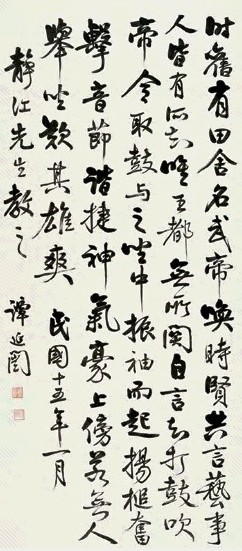 时舊有田舍名武帝喚時賢共言藝事
人皆有所知唯王都無所関自言知打鼓吹
帝令取鼓与之坐中振袖而起揚槌奮
擊音節諧捷神氣豪上傍若無人
舉坐歎其雄爽 民國十五年一月
靜江先生教之 譚延闓